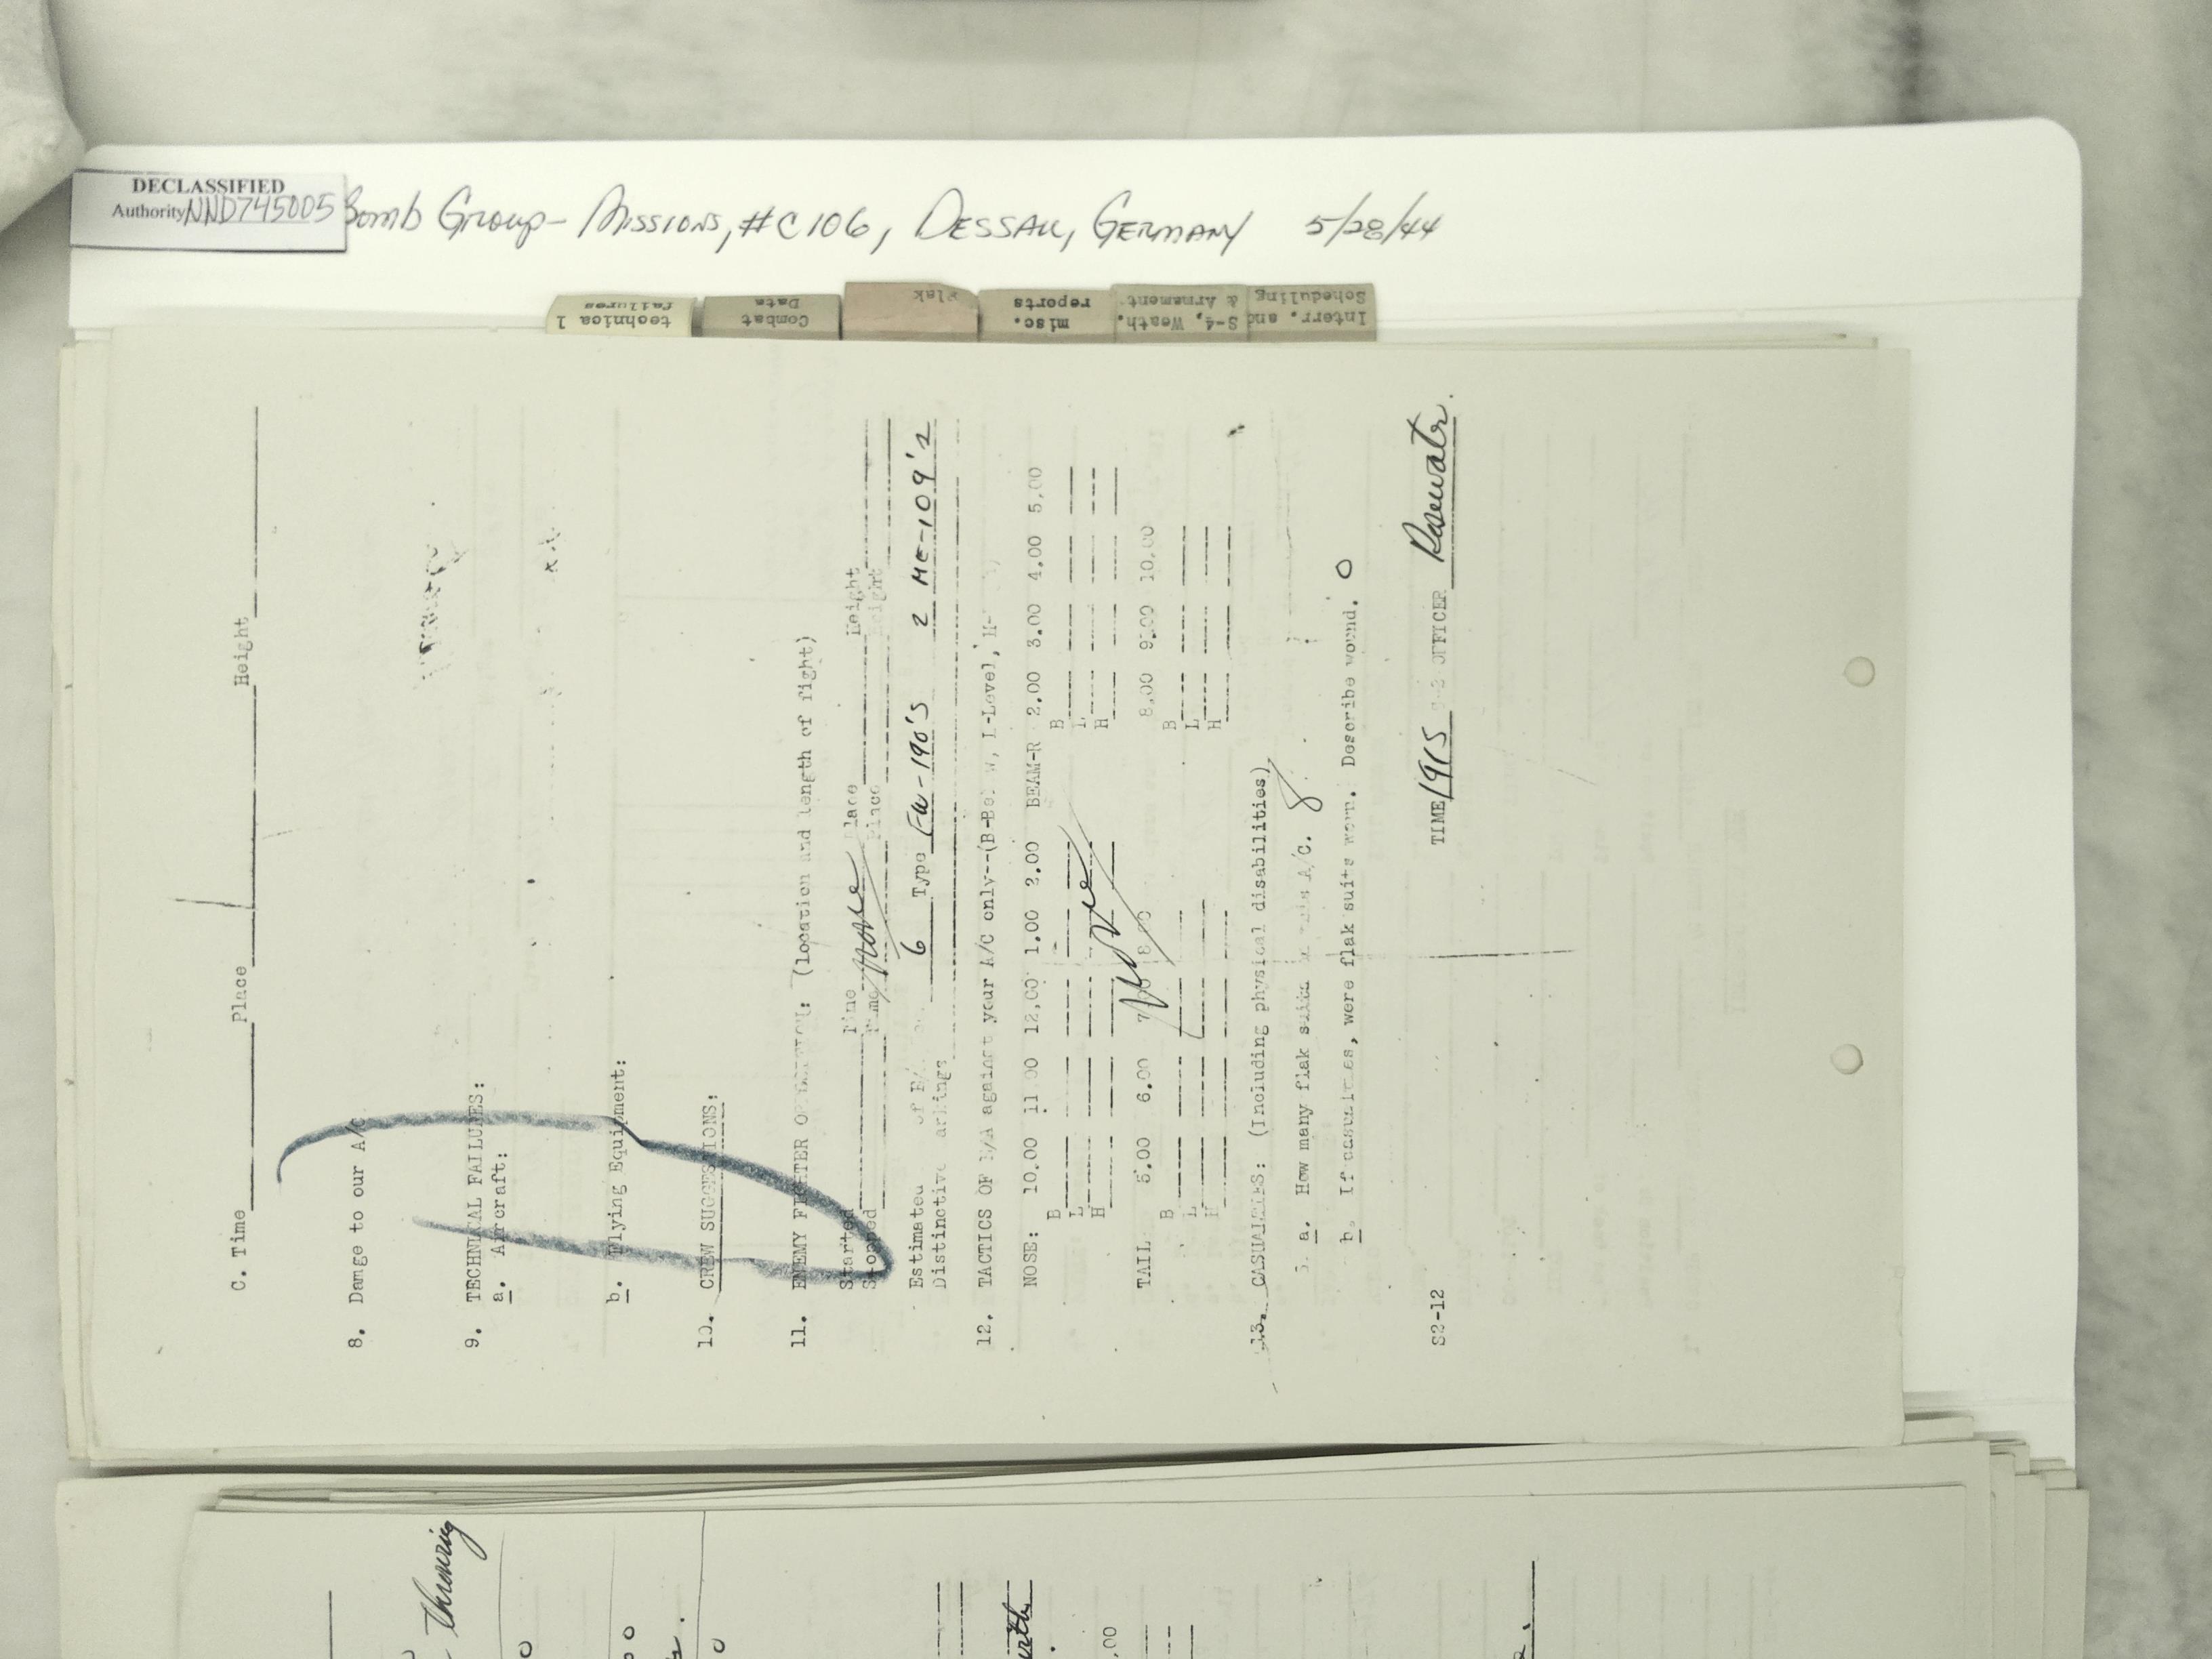 DECLASSIFIED
Authority NND745005
Bomb Group - Missions, #C106, Dessau, Germany 5/28/44
technical failures
Combat Data
Flak
misc. reports
S-4, Weath. & Armament
Interr. and Scheduling
C. Time Place Height
8. Damage to our A/C
9. TECHNICAL FAILURES:
a. Aircraft:
b. Flying Equipment:
10. CREW SUGGESTIONS:
11. ENEMY FIGHTER OPPOSITION: (location and length of fight)
Started Time None Place Height
Stopped Time Place Height
Estimated of E/A 6 Type FW-190'S 2 ME-109's
Distinctive markings
12. TACTICS OF E/A against your A/C only--(B-Below, L-Level, H-
NOSE: 10.00 11.00 12.00 1.00 2.00 BEAM-R 2.00 3.00 4.00 5.00
B B
L L
H H
None
TAIL 5.00 6.00 7.00 8.00 8.00 9.00 10.00
B B
L L
H H
13. CASUALTIES: (Including physical disabilities)
a. How many flak suits in this A/C. 8
b. If casualties, were flak suits worn. Describe wound. 0
S2-12 TIME 1915 S-2 OFFICER Rosewater.
throwing